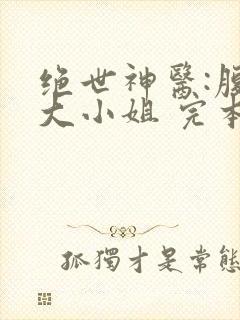 绝世神醫:腹
大小姐 完本
孤獨才是常態